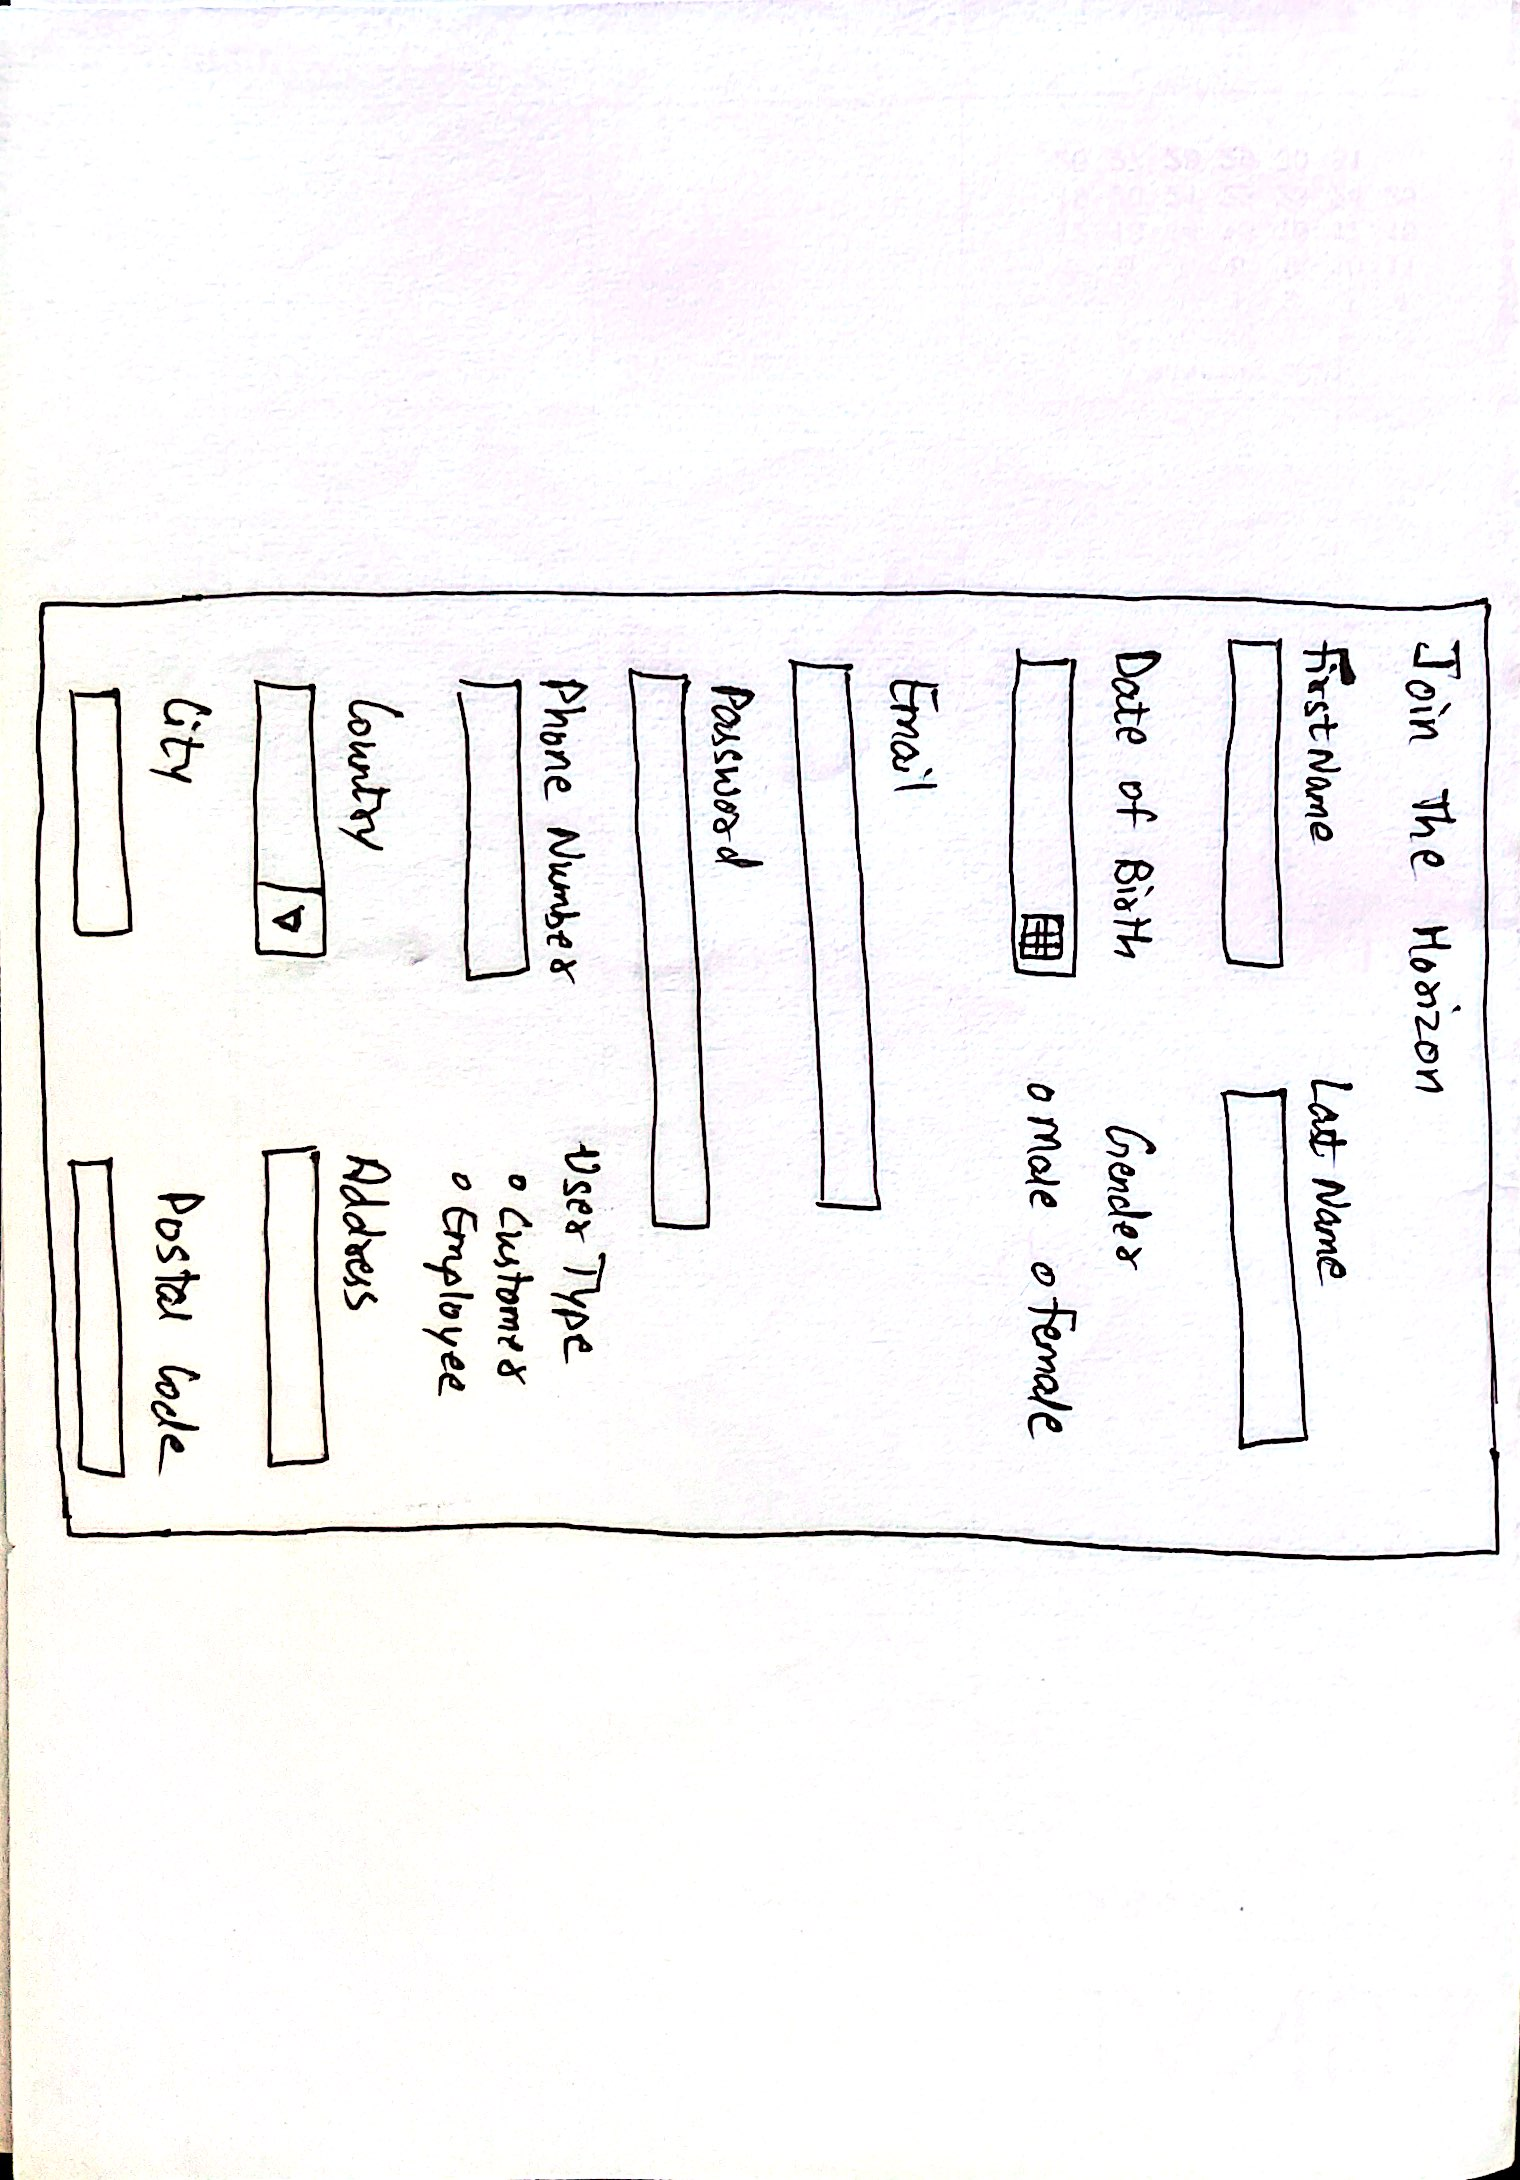 Join The Horizon
First Name
Last Name
Date of Birth
Gender
Male
Female
Email
Password
Phone Number
User Type
Customer
Employee
Country
Address
City
Postal Code